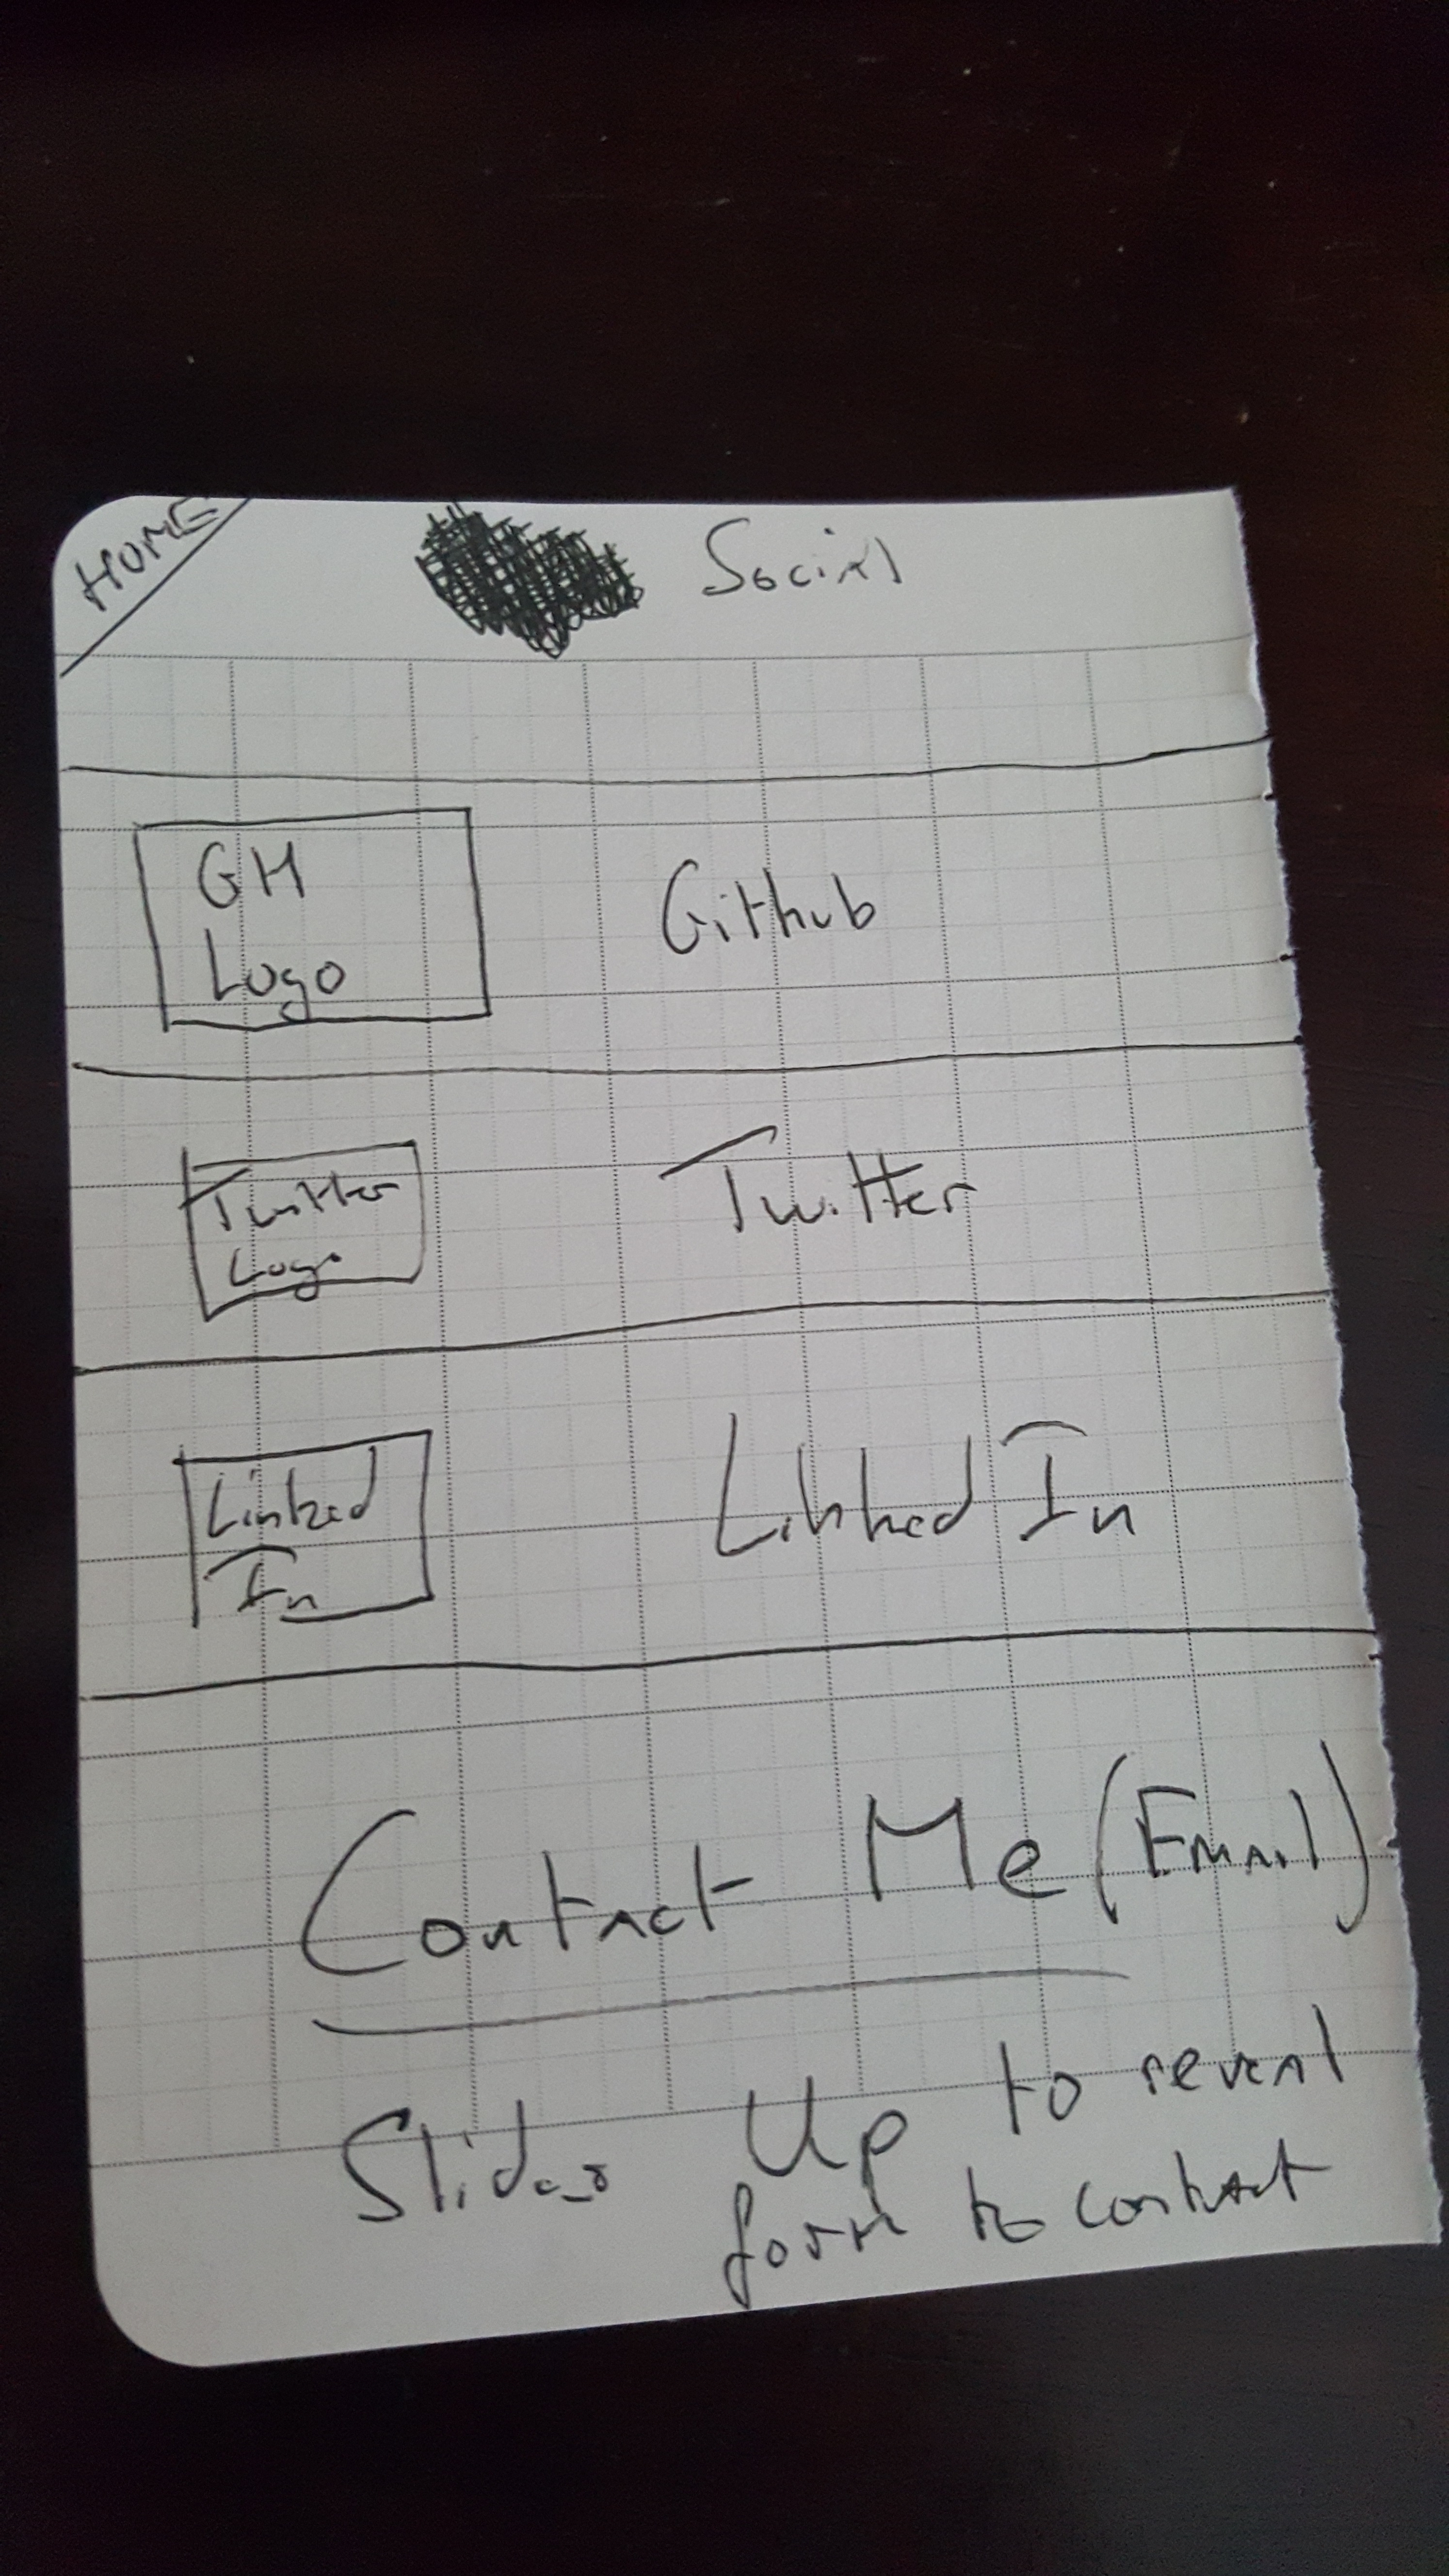 HOME
Social
GH
Logo
Github
Twitter
Logo
Twitter
Linked
In
Linked In
Contact Me (Email)
Slides Up to reveal
form to contact